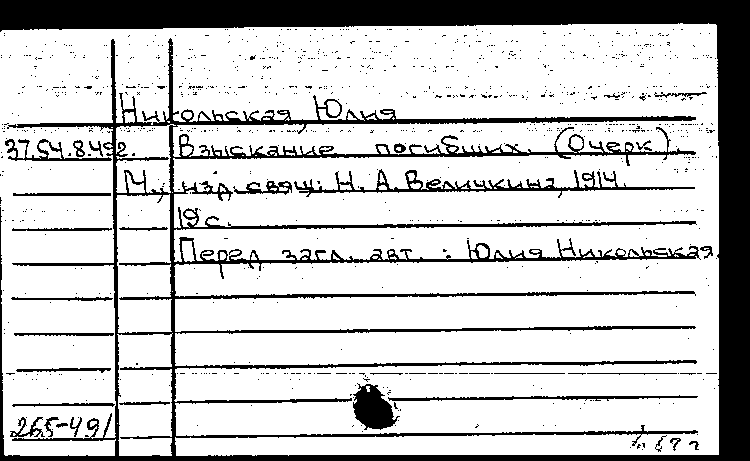 Никольская, Юлия
37.54.8.492. Взыскание погибших. (Очерк).
М., изд. свящ. Н. А. Величкина, 1914.
19 с.
Перед загл. авт. : Юлия Никольская.
265-491